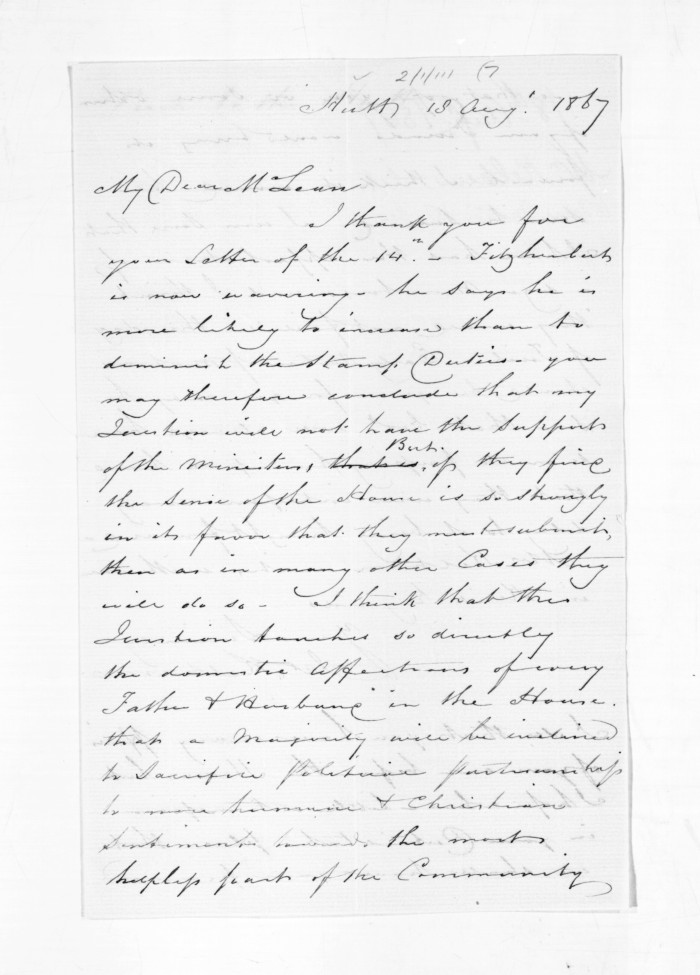 2/1/111 (7
Hutt 18 Augt. 1867
My Dear McLean
I thank you for
your Letter of the 14th. - Fitzherbert
is now wavering - he says he is
more likely to increase than to
diminish the Stamp Duties - you
may therefore conclude that my
Question will not have the support
of the Ministers, But. if they find
the sense of the House is so strongly
in its favor that they must submit,
then as in many other Cases they
will do so - I think that this
Question touches so directly
the domestic affections of every
Father & Husband in the House.
that a Majority will be inclined
to Sacrifice Political partisanship
to more humane & Christian
Sentiments towards the most
helpless part of the Community